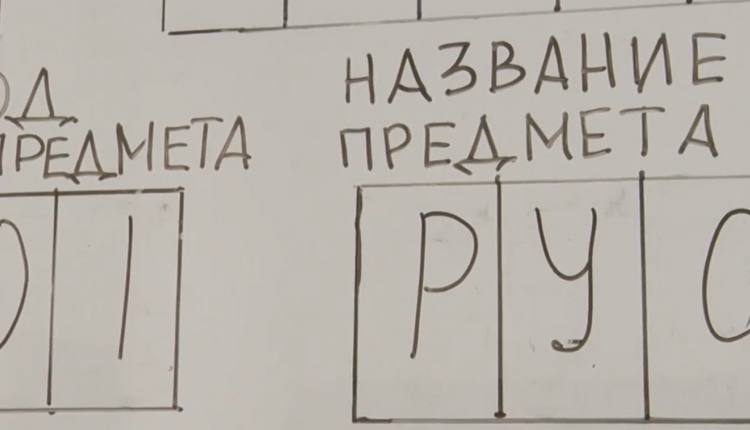 ОД
ПРЕДМЕТА
01
НАЗВАНИЕ
ПРЕДМЕТА
РУС